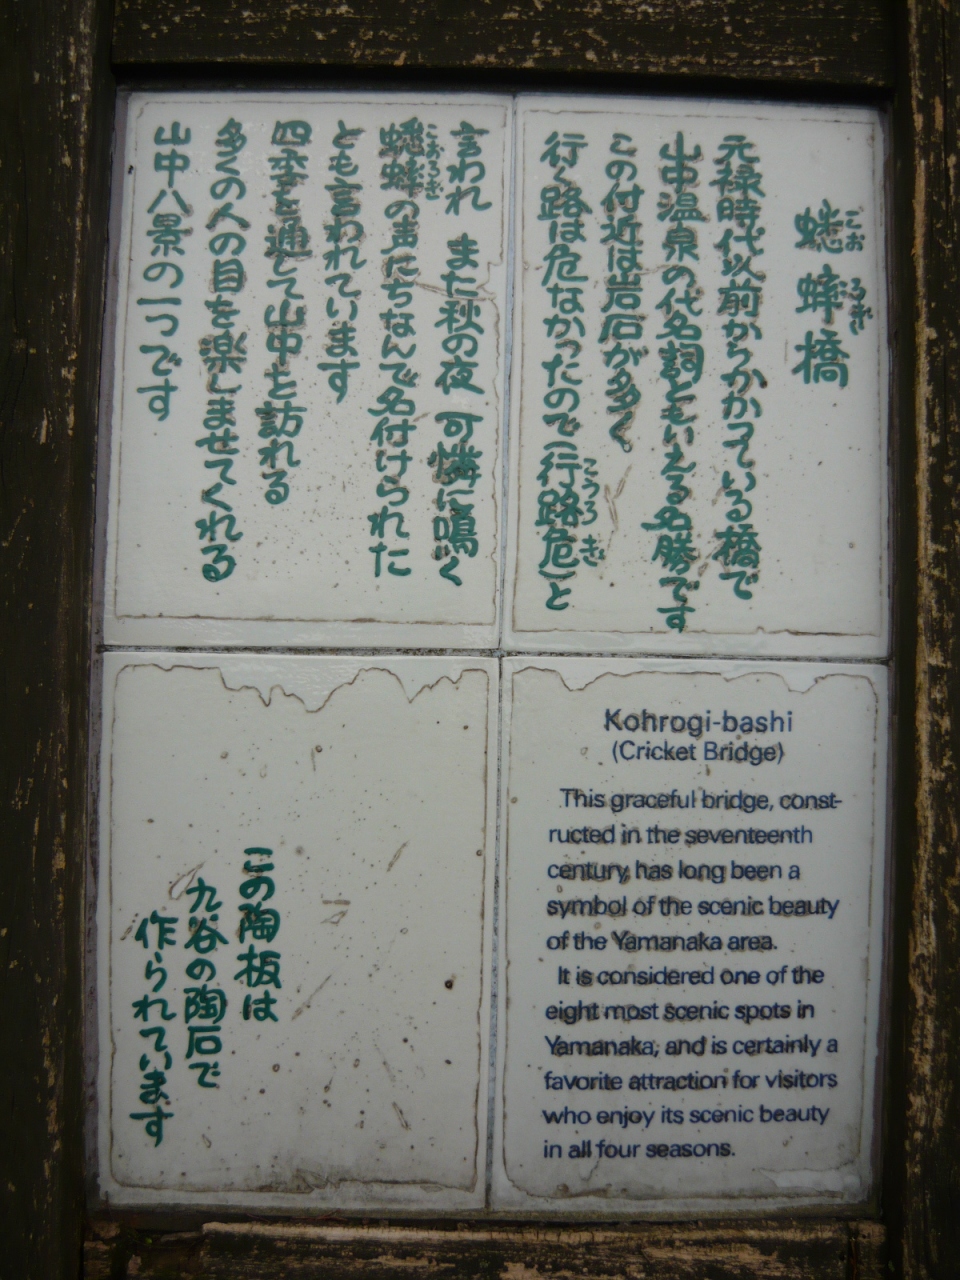 蟋蟀橋
こおろぎ
元禄時代以前からかかっている橋で
山中温泉の代名詞ともいえる名勝です
この付近は岩石が多く
行く路は危なかったので(行路危)と
こうろぎ
言われ また秋の夜 可憐に鳴く
蟋蟀の声にちなんで名付けられた
こおろぎ
とも言われています
四季を通して山中を訪れる
多くの人の目を楽しませてくれる
山中八景の一つです
Kohrogi-bashi
(Cricket Bridge)
This graceful bridge, const-
ructed in the seventeenth
century, has long been a
symbol of the scenic beauty
of the Yamanaka area.
It is considered one of the
eight most scenic spots in
Yamanaka, and is certainly a
favorite attraction for visitors
who enjoy its scenic beauty
in all four seasons.
この陶板は
九谷の陶石で
作られています